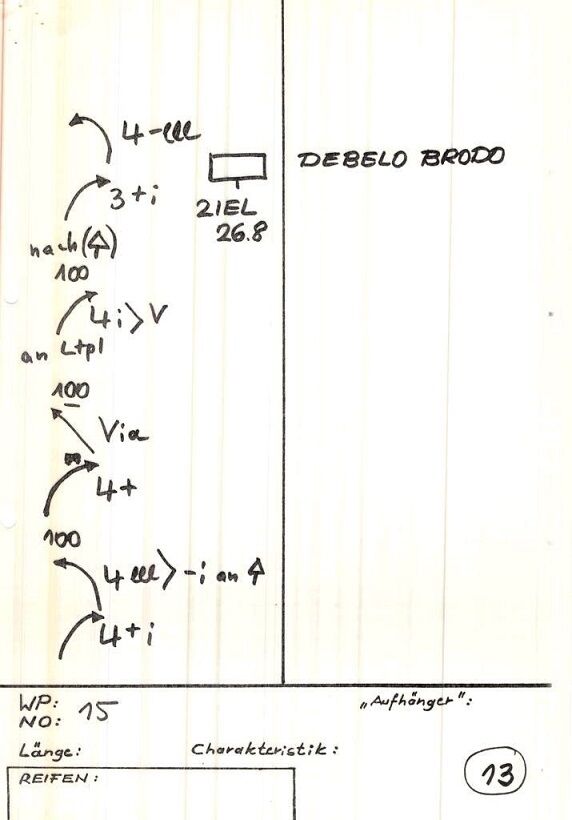 4-lll
DEBELO BRODO
3+i
ZIEL
26.8
nach (⇧)
100
4i>V
an Ltpl
100
Via
4+
100
4lll>-i an ⇧
4+i
WP:
NO: 15
„Aufhänger":
Länge:
Charakteristik:
REIFEN:
13